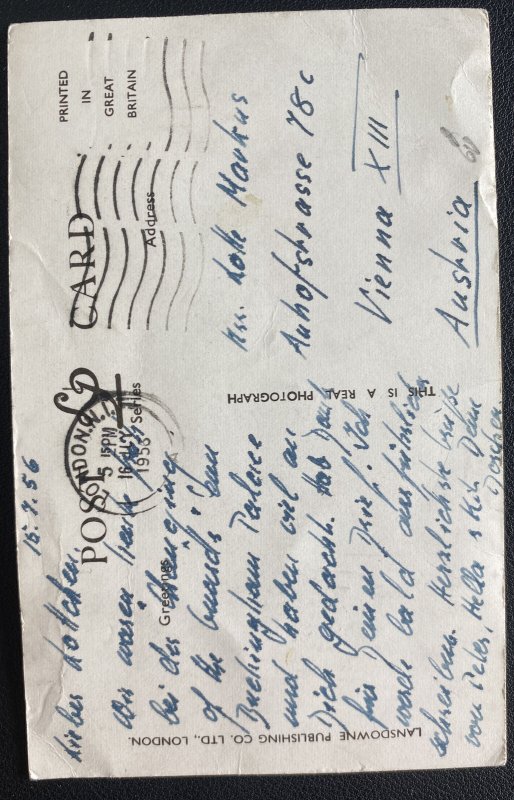 PRINTED
IN
GREAT
BRITAIN
POST CARD
Greetings
Series
Address
LONDON, W.1
5 15 PM
16 JLY
1956
15.7.56
Liebes Lottchen,
Wir waren heute
bei der Changeing
of the Guards i am
Buckingham Palace
und haben viel an
Dich gedacht. Hab Dank
für Deinen Brief! Ich
werde bald ausführlich
schreiben. Herzlichste Grüße
von Peter, Hella & Dein
Lotte Markus
Auhofstrasse 78c
Vienna XIII
Austria
THIS IS A REAL PHOTOGRAPH
LANSDOWNE PUBLISHING CO. LTD., LONDON.